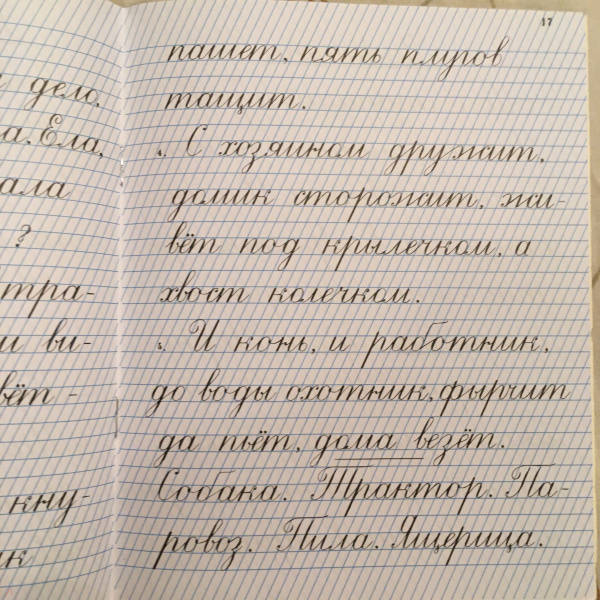 17
дело.
а. Ела,
ала
?
тра-
и ви-
вёт -
кну-
ик
пашет, пять плугов
тащит.
С хозяином дружит,
домик сторожит, жи-
вёт под крылечком, а
хвост колечком.
И конь, и работник,
до воды охотник, фырчит
да пьёт, дома везёт.
Собака. Трактор. Па-
ровоз. Пила. Ящерица.